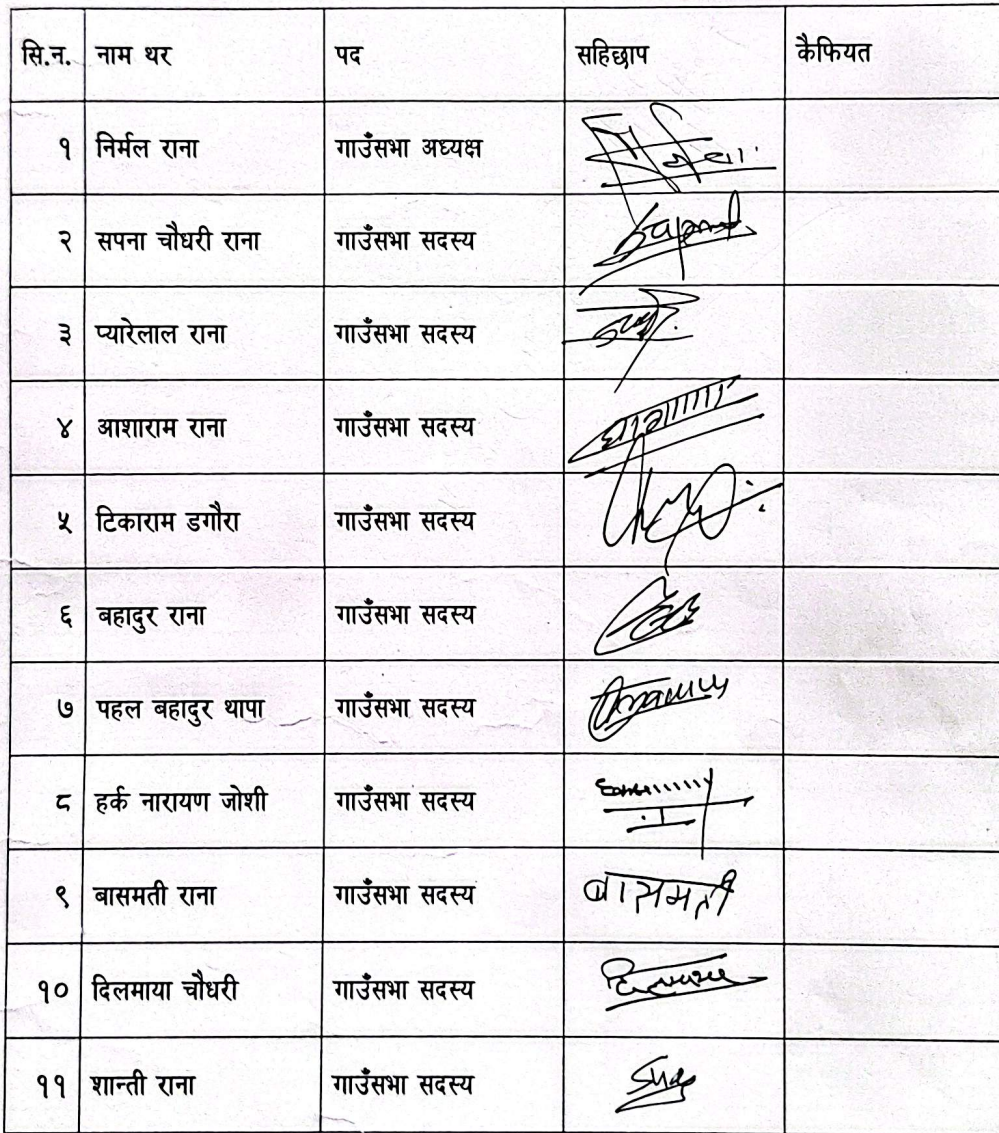 सि.न. नाम थर पद सहिछाप कैफियत
१ निर्मल राना गाउँसभा अध्यक्ष
२ सपना चौधरी राना गाउँसभा सदस्य
३ प्यारेलाल राना गाउँसभा सदस्य
४ आशाराम राना गाउँसभा सदस्य
५ टिकाराम डगौरा गाउँसभा सदस्य
६ बहादुर राना गाउँसभा सदस्य
७ पहल बहादुर थापा गाउँसभा सदस्य
८ हर्क नारायण जोशी गाउँसभा सदस्य
९ बासमती राना गाउँसभा सदस्य बासमती
१० दिलमाया चौधरी गाउँसभा सदस्य
११ शान्ती राना गाउँसभा सदस्य